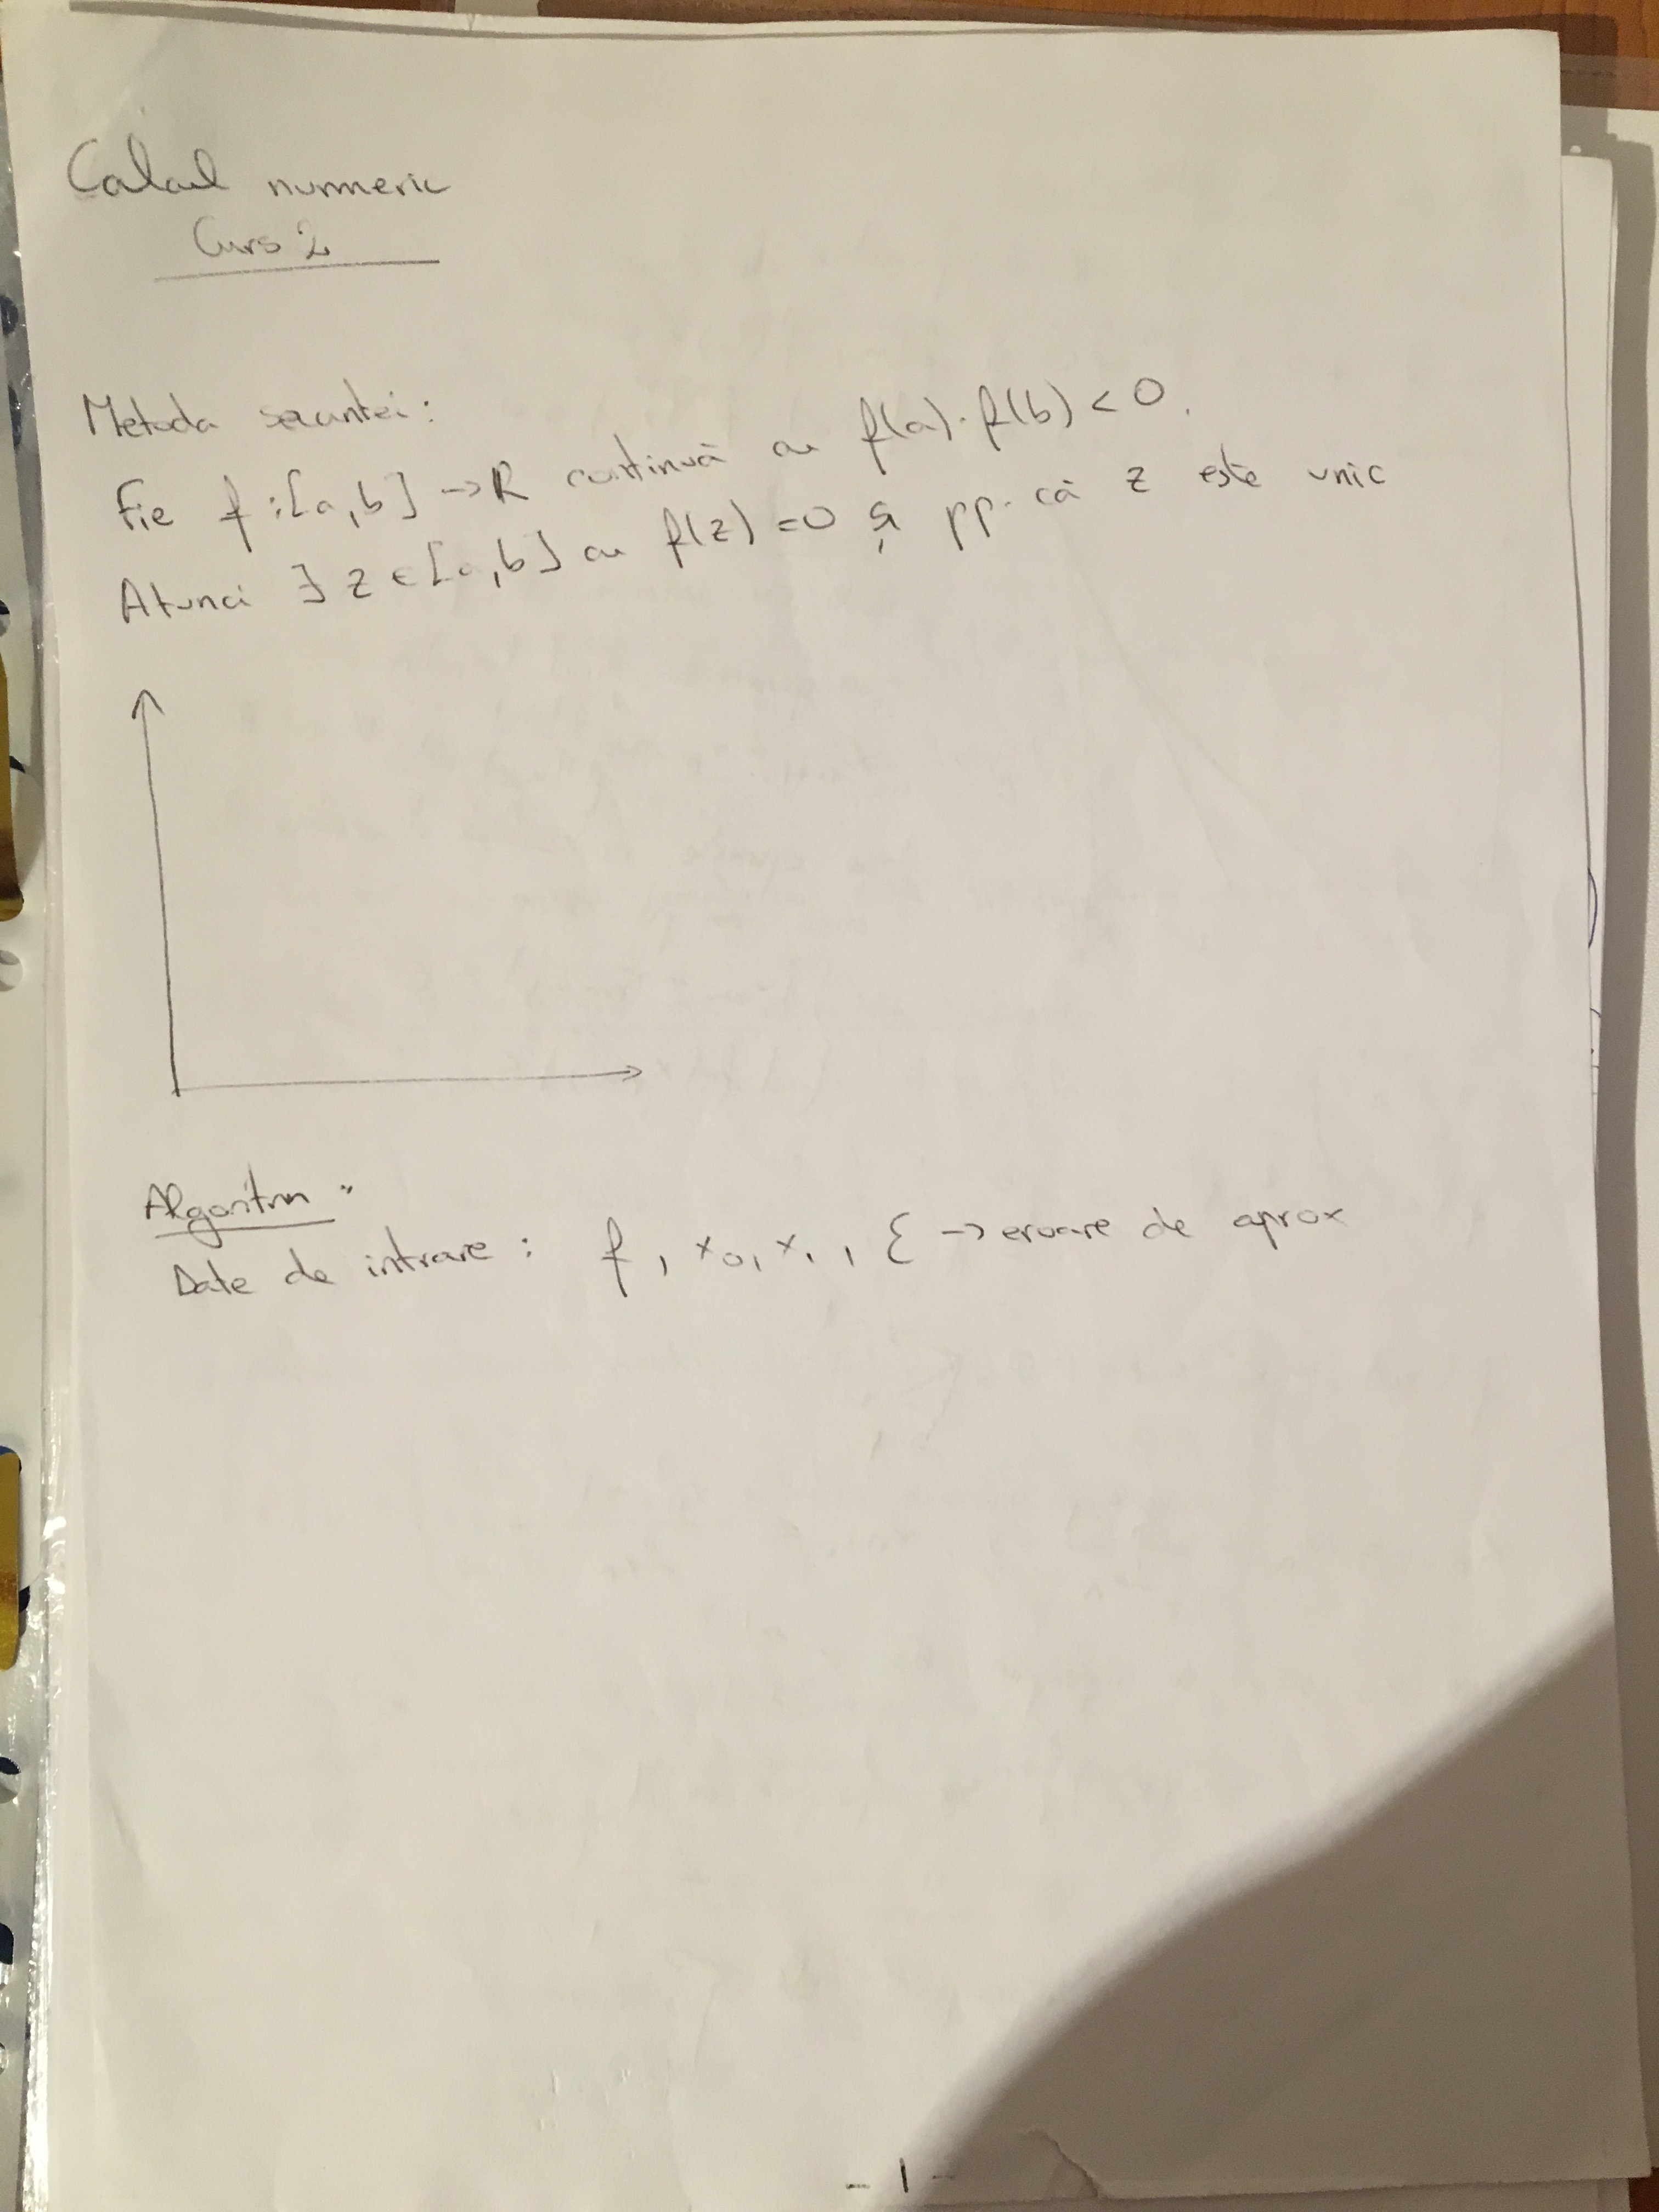 Calcul numeric
Curs 2
Metoda secantei:
Fie f:[a,b] → R continuă cu f(a)·f(b) < 0.
Atunci ∃ z ∈ [a,b] cu f(z) = 0 și pp. că z este unic
Algoritm:
Date de intrare: f, x₀, x₁, ε → eroare de aprox
- 1 -